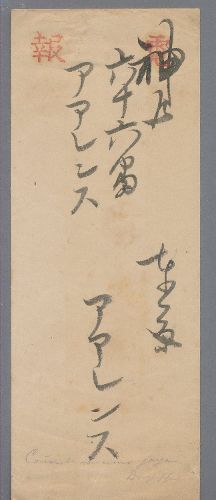 電報
神戸
六十六番
アアレンス
東京
アアレンス